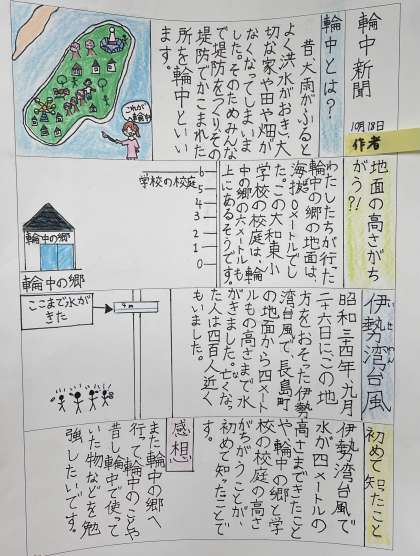 輪中新聞
10月18日
作者
輪中とは?
昔大雨がふると
よく洪水がおき、大
切な家や田や畑が
なくなってしまいま
した。そのためみんな
で堤防をつくり、その
堤防でかこまれた
所を輪中といい
ます。
これが
輪中
地面の高さがち
がう?!
わたしたちが行った
輪中の郷の地面は、
海抜0メートルでし
た。この大和東小
学校の校庭は、輪
中の郷の六メートルも
上にあるそうです。
学校の校庭
6
5
4
3
2
1
0
輪中の郷
輪中の郷
伊勢湾台風
昭和三十四年、九月
二十六日にこの地
方をおそった伊勢
湾台風で、長島町
の地面から四メート
ルもの高さまで水
がきました。亡くなっ
た人は四百人近く
もいました。
ここまで水が
きた
4m
初めて知ったこと
伊勢湾台風で
水が四メートルの
高さまできたこと
や輪中の郷と学
校の校庭の高さ
がちがうことが、
初めて知ったことで
す。
感想
また輪中の郷へ
行って、輪中のことや
昔し輪中で使って
いた物などを勉
強したいです。